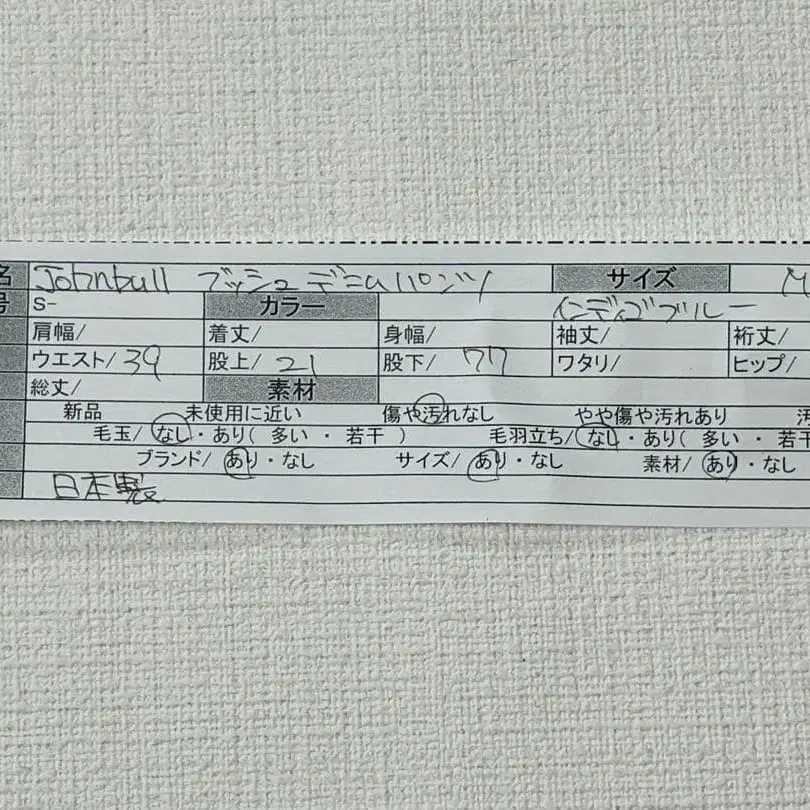 名 Johnbull ブッシュデニムパンツ サイズ M
号 S- カラー インディゴブルー
肩幅/ 着丈/ 身幅/ 袖丈/ 裄丈/
ウエスト/ 39 股上/ 21 股下/ 77 ワタリ/ ヒップ/
総丈/ 素材
新品 未使用に近い 傷や汚れなし やや傷や汚れあり
毛玉/ なし・あり( 多い ・ 若干 ) 毛羽立ち/ なし・あり( 多い ・ 若干
ブランド/ あり・なし サイズ/ あり・なし 素材/ あり・なし
日本製